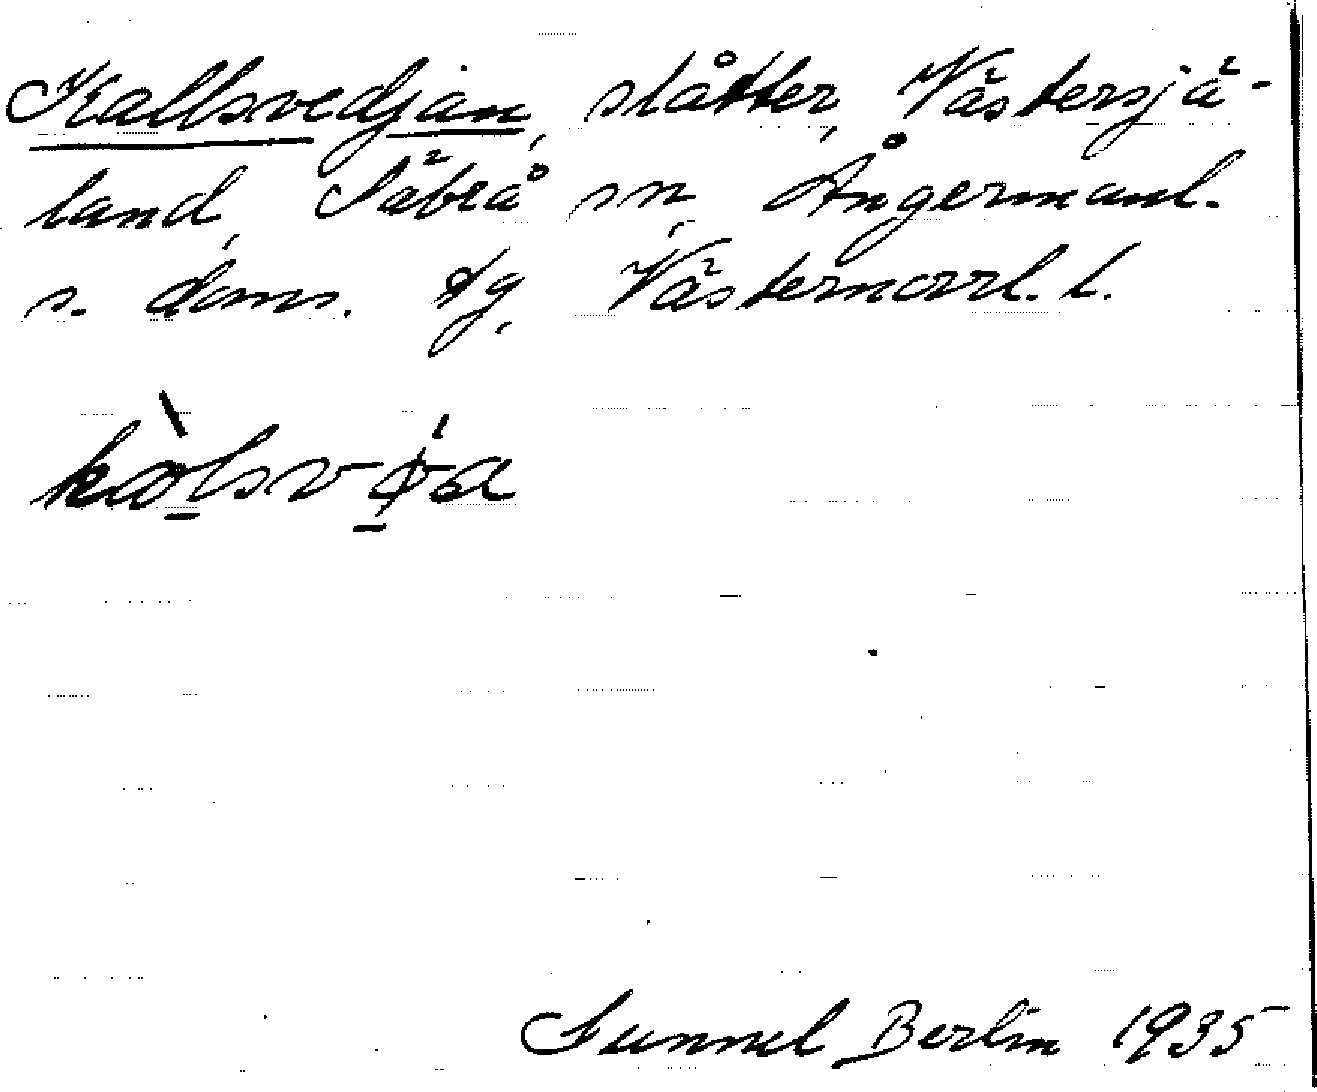 Kallsvedjan, slåtter, Västersjä-
land, Säbrå sn, Ångermanl.
s. doms. tg, Västernorrl. l.
Sunnel Berlin 1935